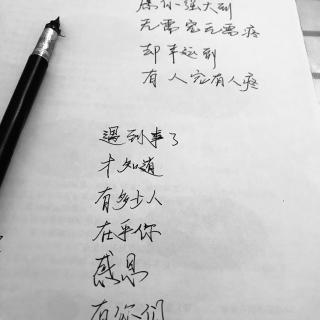 愿你强大到
无需宠无需疼
却幸运到
有人宠有人疼
遇到事了
才知道
有多少人
在乎你
感恩
有你们